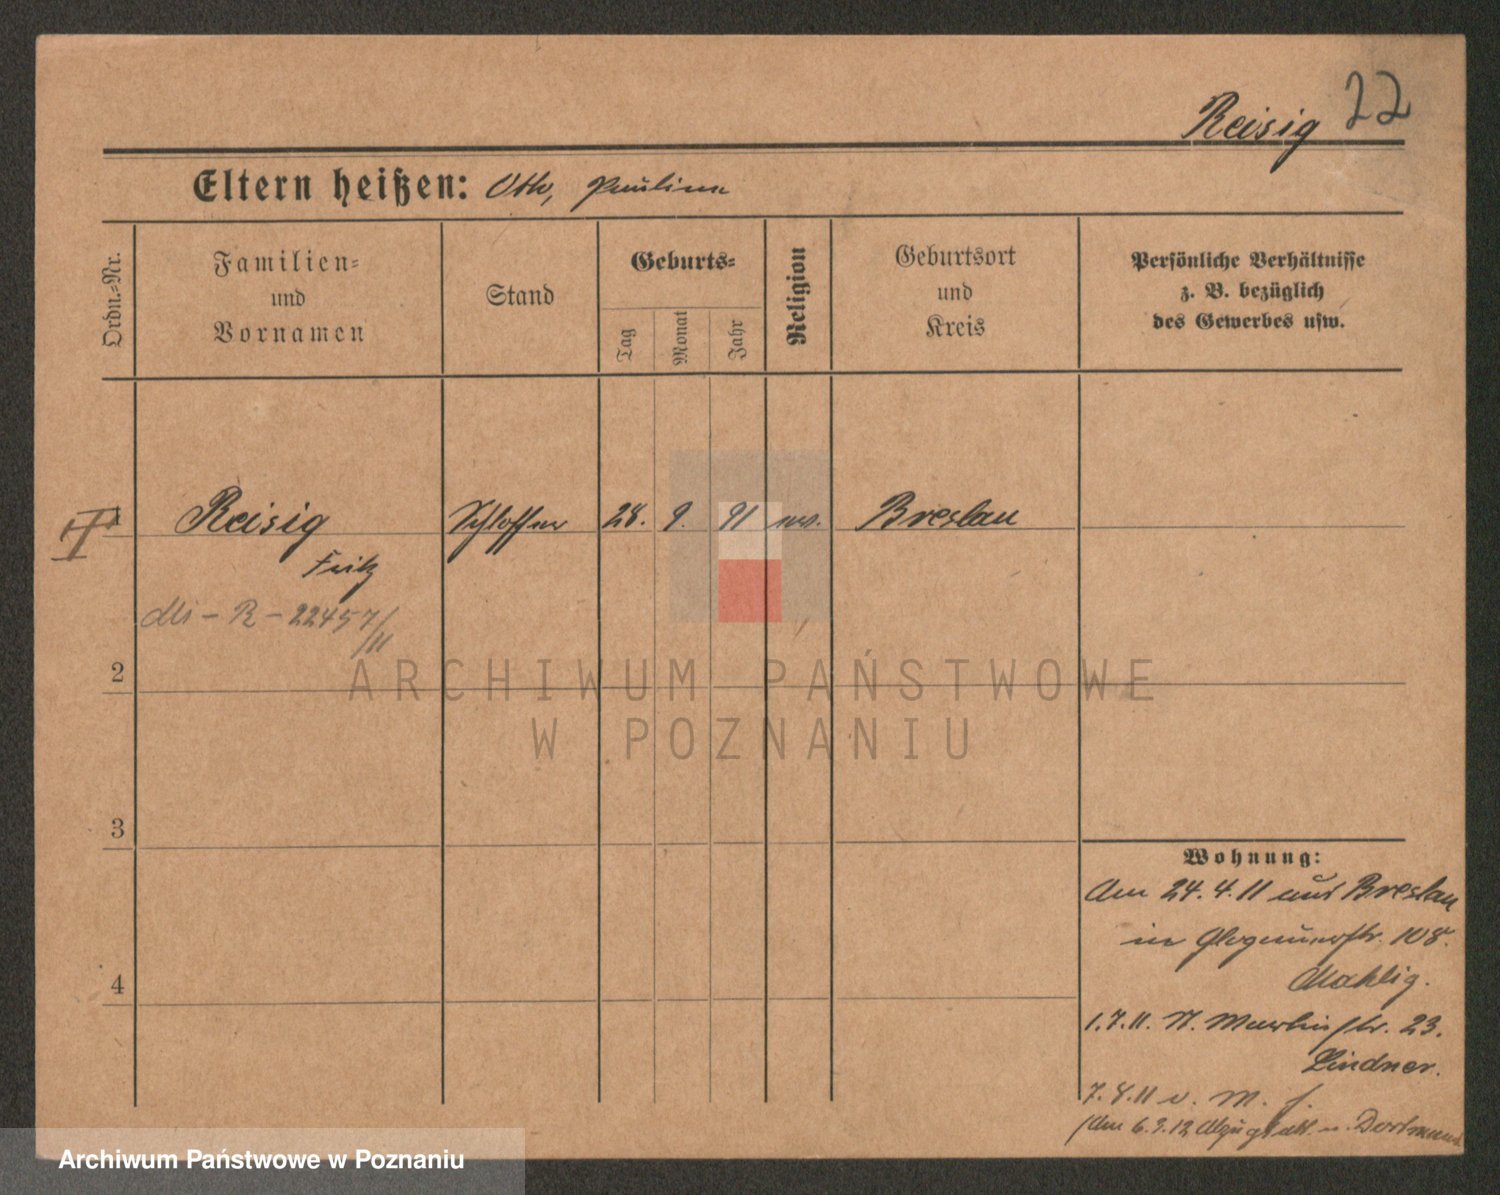 22
Reisig
Eltern heißen: Otto, Pauline
Ordn.-Nr.
Familien-
und
Vornamen
Stand
Geburts-
Tag
Monat
Jahr
Religion
Geburtsort
und
Kreis
Persönliche Verhältnisse
z. B. bezüglich
des Gewerbes usw.
1 Reisig Schlosser 28. 9. 91 Breslau
Fritz
R - 22457/11
2
3
4
Wohnung:
Am 24.4.11 aus Breslau
in Glogauerstr. 108.
Mahlig.
1.7.11. N. Martinstr. 23.
Lindner.
7.8.11 v. M.
Am 6.9.12 n. Dortmund
ARCHIWUM PAŃSTWOWE
W POZNANIU
Archiwum Państwowe w Poznaniu